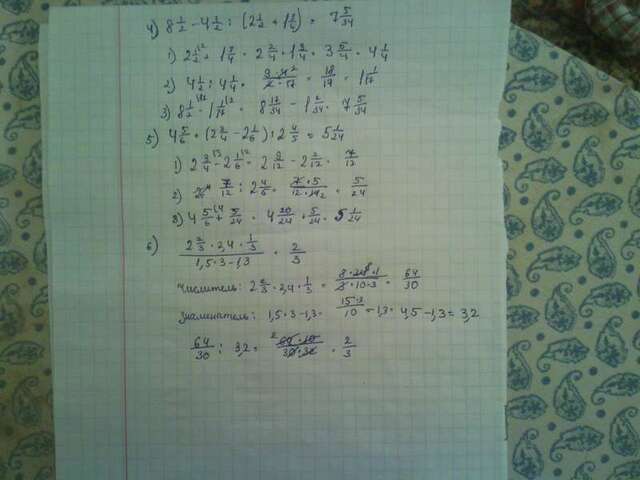 4) 8 1/2 - 4 1/2 : (2 1/2 + 1 3/4) = 7 5/34
1) 2 1/2 + 1 3/4 = 2 2/4 + 1 3/4 = 3 5/4 = 4 1/4
2) 4 1/2 : 4 1/4 = 9·4²/2·17 = 18/17 = 1 1/17
3) 8 1/2 - 1 1/17 = 8 17/34 - 1 2/34 = 7 5/34
5) 4 5/6 + (2 3/4 - 2 1/6) : 2 4/5 = 5 1/24
1) 2 3/4 - 2 1/6 = 2 9/12 - 2 2/12 = 7/12
2) 7/12 : 2 4/5 = 7·5/12·14₂ = 5/24
3) 4 5/6 + 5/24 = 4 20/24 + 5/24 = 5 1/24
6) 2 2/3 · 2,4 · 1/3 / 1,5·3-1,3 = 2/3
Числитель: 2 2/3 · 2,4 · 1/3 = 8·24·1/3·10·3 = 64/30
Знаменатель: 1,5·3-1,3 = 15·3/10 - 1,3 = 4,5-1,3 = 3,2
64/30 : 3,2 = ²64·10/30·32 = 2/3